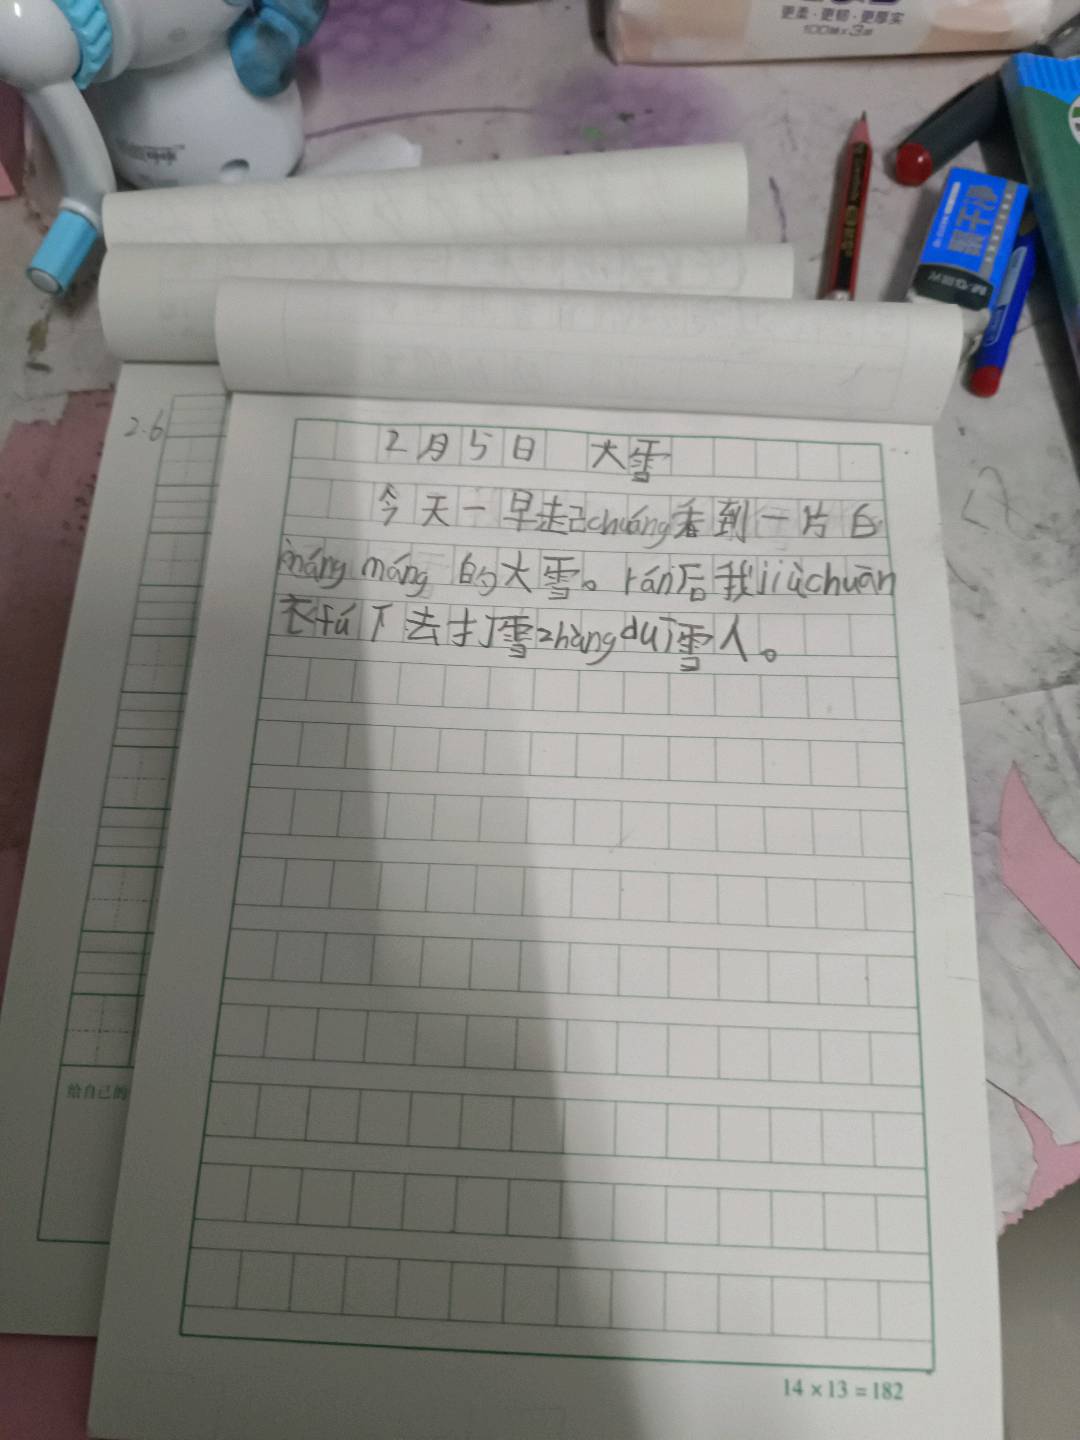 更柔·更韧·更厚实
100抽×3层
2.6
2月5日 大雪
今天一早起chuáng看到一片白
máng máng 的大雪。rán后我jiùchuān
衣fú下去打雪zhàngduī雪人。
给自己的
14×13=182